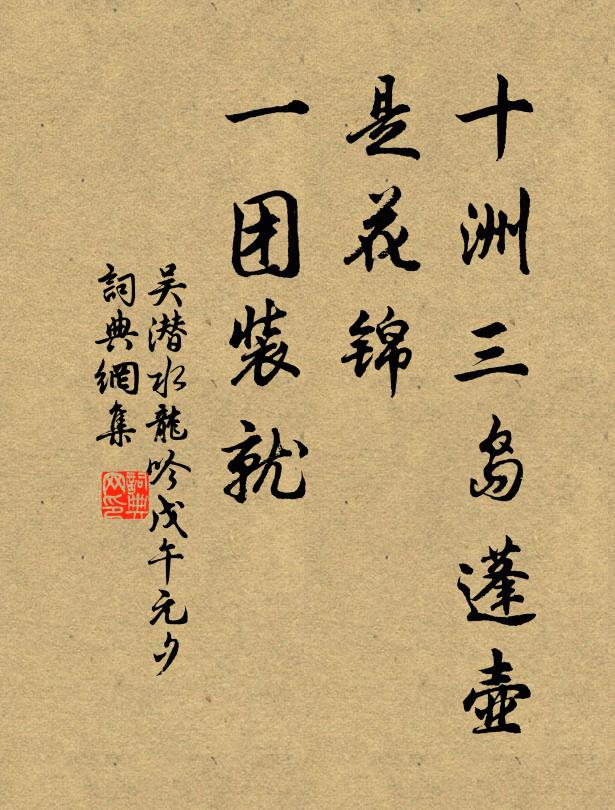 十洲三岛蓬壶
是花锦
一团装就
吴潜水龍吟戊午元夕
詞典網集
詞典网印